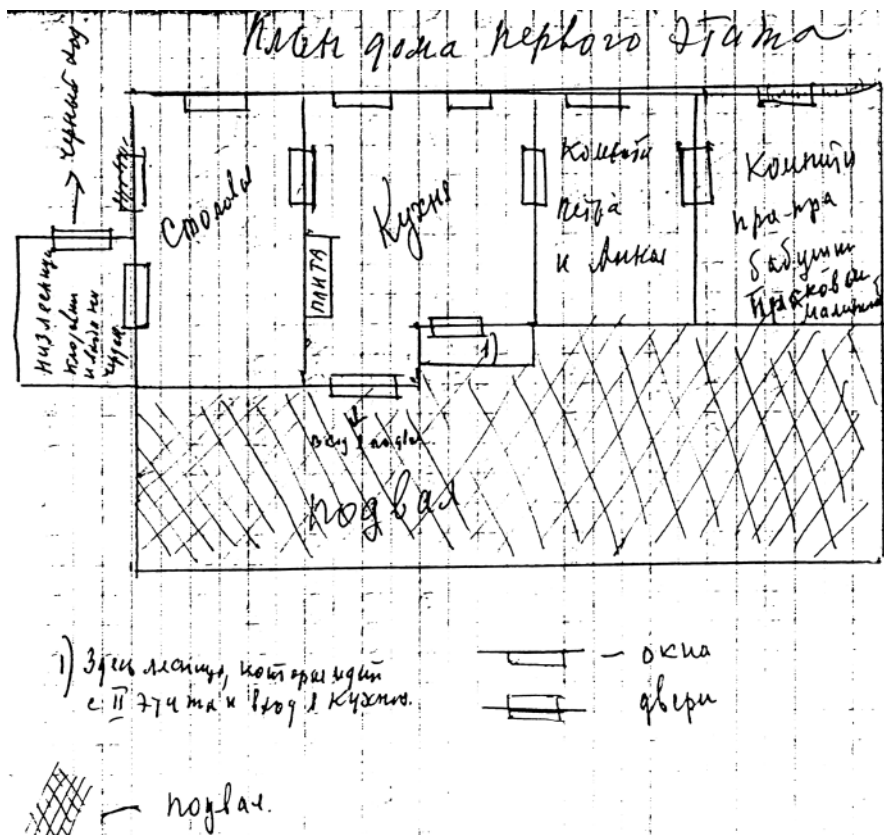 План дома первого этажа
→ черный ход.
Столовая
Кухня
ПЛИТА
Комната
Петра
и Анны
Комната
пра-пра
бабушки
Прасковьи
Низ лестницы
кладовки
и вход на
чердак
1)
вход в подвал
подвал
1) Здесь лесница, которая идёт
с II этажа и вход в кухню.
— окна
двери
— подвал.